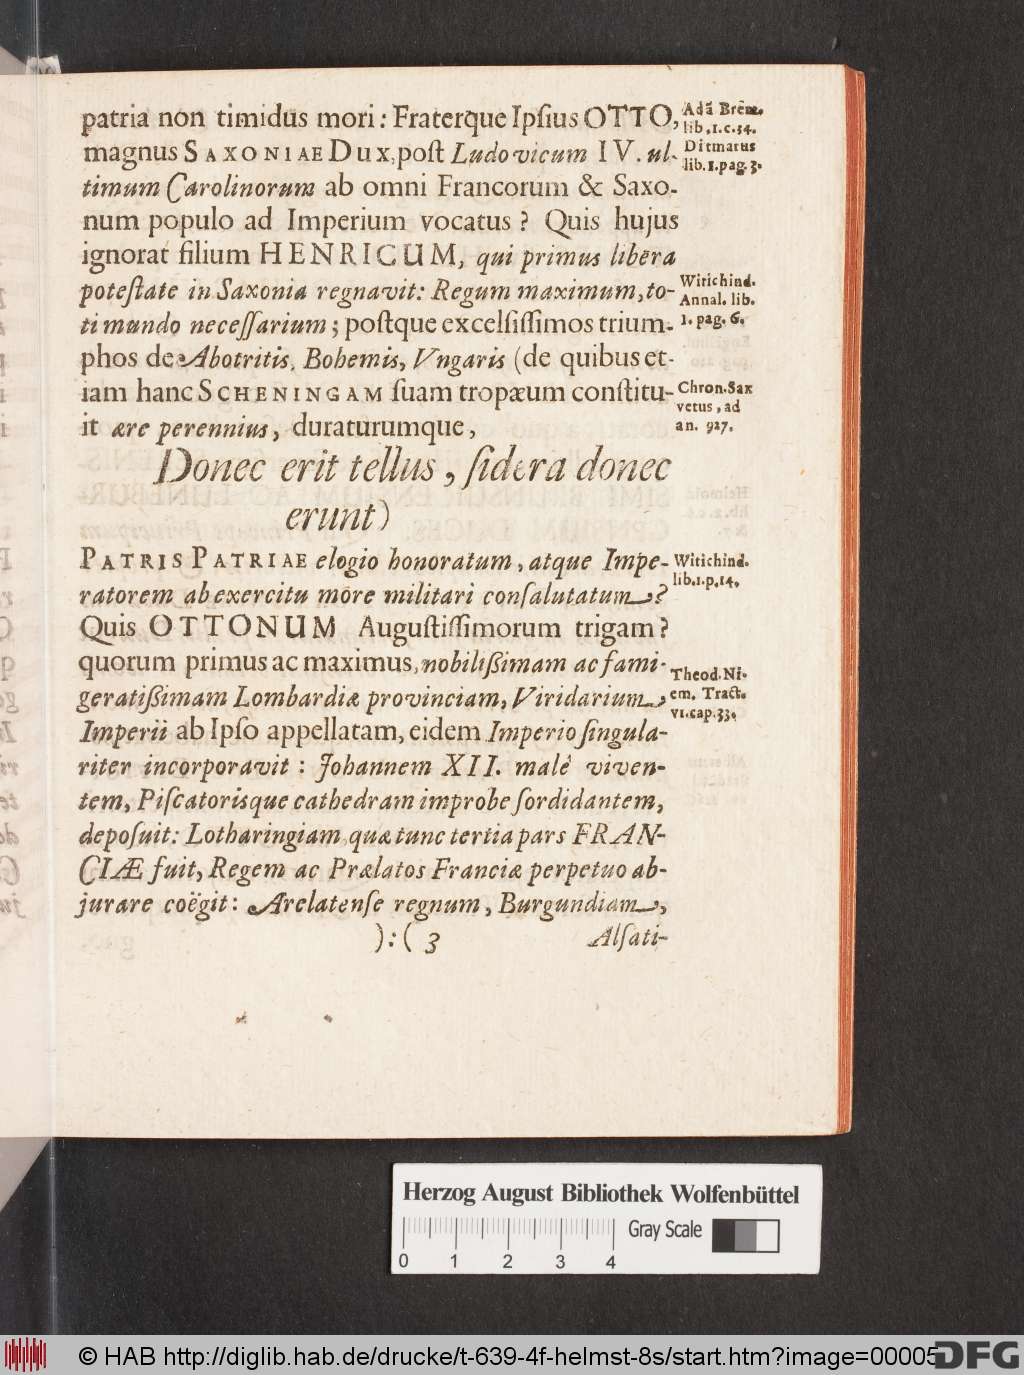 patria non timidus mori: Fraterque Ipſius OTTO,
magnus SAXONIAE DUX, poſt Ludovicum IV. ul-
timum Carolinorum ab omni Francorum & Saxo-
num populo ad Imperium vocatus? Quis hujus
ignorat filium HENRICUM, qui primus libera
poteſtate in Saxonia regnavit: Regum maximum, to-
ti mundo neceſſarium; poſtque excelſiſſimos trium-
phos de Abotritis, Bohemis, Vngaris (de quibus et-
iam hanc SCHENINGAM ſuam tropæum conſtitu-
it ære perennius, duraturumque,
Donec erit tellus, ſidera donec
erunt)
PATRIS PATRIAE elogio honoratum, atque Impe-
ratorem ab exercitu more militari conſalutatum?
Quis OTTONUM Auguſtiſſimorum trigam?
quorum primus ac maximus, nobilißimam ac fami-
geratißimam Lombardiæ provinciam, Viridarium,
Imperii ab Ipſo appellatam, eidem Imperio ſingula-
riter incorporavit: Johannem XII. malè viven-
tem, Piſcatorisque cathedram improbe ſordidantem,
depoſuit: Lotharingiam, quæ tunc tertia pars FRAN-
CIÆ fuit, Regem ac Prælatos Franciæ perpetuo ab-
jurare coëgit: Arelatenſe regnum, Burgundiam,
):( 3 Alſati-
Adā Brēm.
lib. 1. c. 54.
Ditmarus
lib. 1. pag. 3.
Witichind.
Annal. lib.
1. pag. 6.
Chron. Sax
vetus, ad
an. 927.
Witichind.
lib. 1. p. 14.
Theod. Ni-
em. Tract.
VI. cap. 33.
Herzog August Bibliothek Wolfenbüttel
Gray Scale
0 1 2 3 4
© HAB http://diglib.hab.de/drucke/t-639-4f-helmst-8s/start.htm?image=00005
DFG